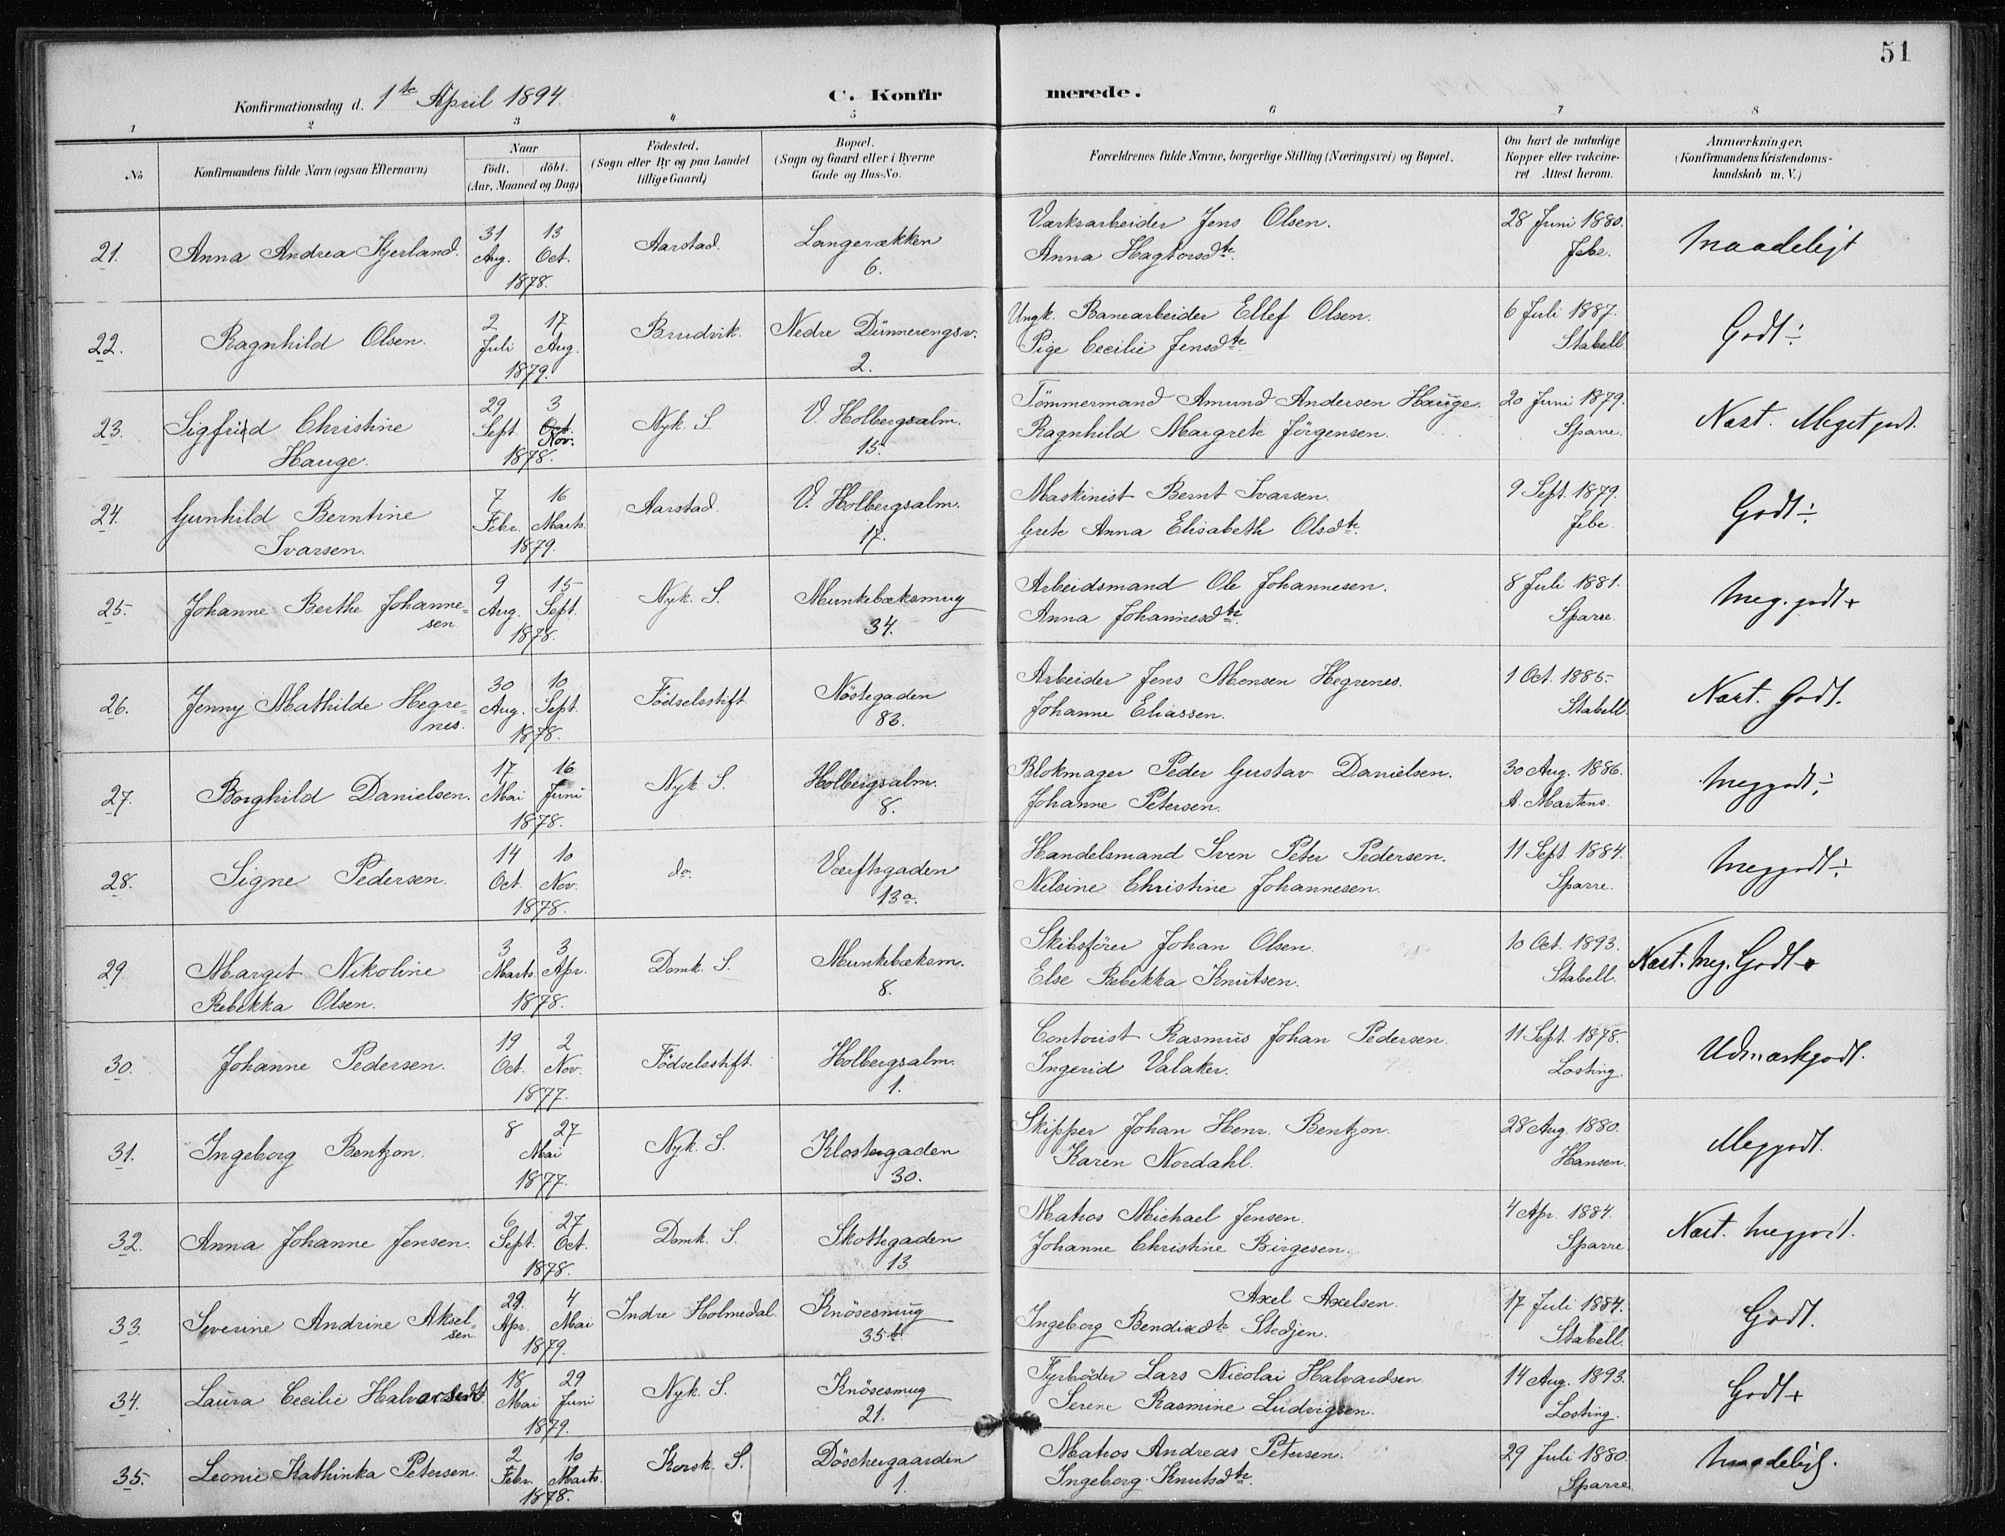 51
Konfirmationsdag d. 1te April 1894.
C. Konfirmerede.
1 2 3 4 5 6 7 8
No
Konfirmandens fulde Navn (ogsaa Efternavn)
Naar
födt. döbt.
(Aar, Maaned og Dag)
Födested.
(Sogn eller By og paa Landet
tillige Gaard)
Bopæl.
(Sogn og Gaard eller i Byerne
Gade og Hus-No.
Forældrenes fulde Navne, borgerlige Stilling (Næringsvei) og Bopæl.
Om havt de naturlige
Kopper eller vakcine-
ret Attest herom.
Anmærkninger,
(Konfirmandens Kristendoms-
kundskab m. V.)
21. Anna Andrea Kjerland. 31 Aug. 13 Oct. 1878. Aarstad. Langerækken 6. Værksarbeider Jens Olsen. 28 Juni 1880.
Anna Hagtorsdtr. Jebe. Maadeligt
22. Ragnhild Olsen. 2 Juli 17 Aug. 1879. Brudvik. Nedre Dünnerengsv. 2. Ungk. Banearbeider Ellef Olsen. 6 Juli 1887.
Pige Cecilie Jensdtr. Stabell. Godt÷
23. Sigfrid Christine
Hauge. 29 Sept. 3 Oct. Nov. 1878. Nyk. S. V. Holbergsalm. 15. Tömmermand Amund Andersen Hauge. 20 Juni 1879.
Ragnhild Margrete Jörgensen. Sparre. Næst. Meget godt.
24. Gunhild Berntine
Ivarsen. 7 Febr. 16 Marts. 1879. Aarstad. V. Holbergsalm. 17. Maskinist Bernt Ivarsen. 9 Sept. 1879.
Grete Anna Elisabeth Olsdtr. Jebe. Godt÷
25. Johanne Berthe Johanne-
sen. 9 Aug. 15 Sept. 1878. Nyk. S. Munkebæksmug 34. Arbeidsmand Ole Johannesen. 8 Juli 1881.
Anna Johannesdtr. Sparre. Meg. godt+
26. Jenny Mathilde Hegre-
nes. 30 Aug. 10 Sept. 1878. Födselsstift. Nöstegaden 83. Arbeider Jens Monsen Hegrenes. 1 Oct. 1885.
Johanne Eliassen. Stabell. Næst. Godt.
27. Borghild Danielsen. 17 Mai 16 Juni 1878. Nyk S. Holbergsalm. 8. Blokmager Peder Gustav Danielsen. 30 Aug. 1886.
Johanne Petersen. A. Martens. Meggodt÷
28. Signe Pedersen. 14 Oct. 10 Nov. 1878. do. Værftsgaden 13a. Handelsmand Sven Peter Pedersen. 11 Sept. 1884.
Nilsine Christine Johannesen. Sparre. Meggodt÷
29. Margit Nikoline
Rebekka Olsen. 3 Marts. 3 Apr. 1878. Domk. S. Munkebæksm. 8. Skibsförer Johan Olsen. 10 Oct. 1893.
Else Rebekka Knutsen. Stabell. Næst. Meg. Godt+
30. Johanne Pedersen. 19 Oct. 2 Nov. 1877. Födselsstift. Holbergsalm. 1. Contorist Rasmus Johan Pedersen. 11 Sept. 1878.
Ingerid Valaker. Losting. Udmærkgodt.
31. Ingeborg Bentzon. 8 27 Mai 1877. Nyk. S. Klostergaden 30. Skipper Johan Henr. Bentzon. 28 Aug. 1880.
Karen Nordahl. Hansen. Meggodt.
32. Anna Johanne Jensen. 6 Sept. 27 Oct. 1878. Domk. S. Skottegaden 13. Matros Michael Jensen. 4 Apr. 1884.
Johanne Christine Birgesen. Sparre Næst. Meggodt.
33. Severine Andrine Aksel-
sen. 29. Apr. 4 Mai 1879. Indre Holmedal. Knösesmug 35b. Axel Axelsen. 17 Juli 1884.
Ingeborg Bendixdtr Stedjen. Stabell. Godt.
34. Laura Cecilie Halvorsdtr. 18 Mai 29 Juni 1879. Nyk. S. Knösesmug 21. Fyrböder Lars Nicolai Halvardsen. 14 Aug. 1893.
Serene Rasmine Ludvigsen. Losting. Godt+
35. Leonie Kathinka Petersen. 2 Febr. 10 Marts. 1878. Korsk. S. Döschergaarden 1. Matros Andreas Petersen. 29 Juli 1880.
Ingeborg Knutsdtr. Sparre. Maadeligt.